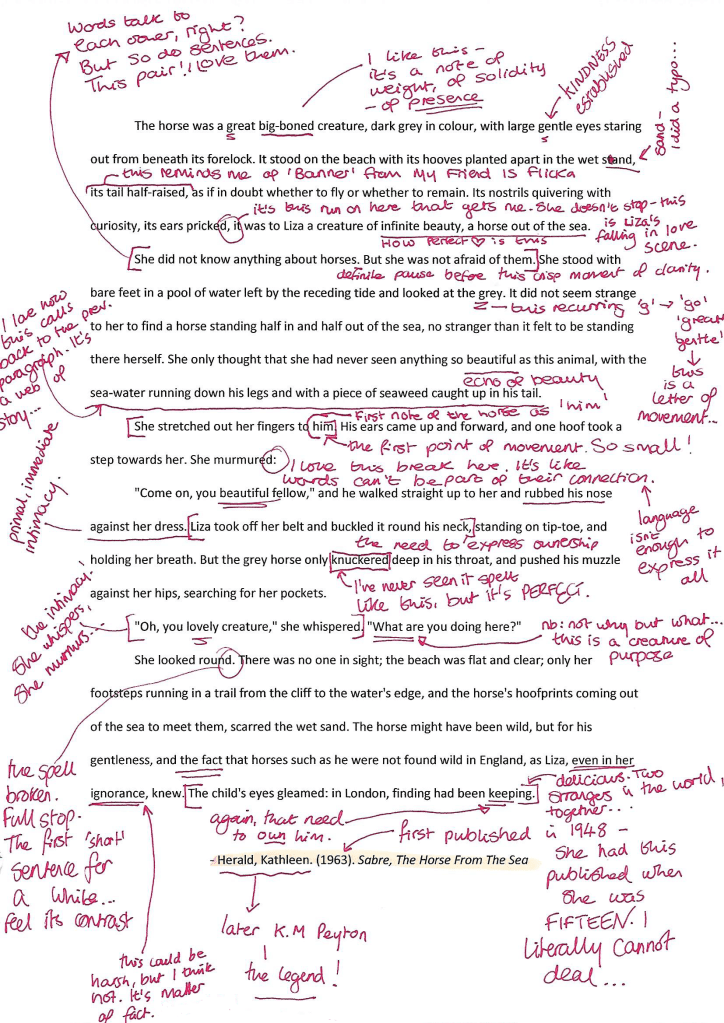 Words talk to
each other, right?
But so do sentences.
This pair! I love them.
I like this -
it's a note of
weight, of solidity
- of presence
KINDNESS
established
sand -
I did a typo...
The horse was a great big-boned creature, dark grey in colour, with large gentle eyes staring
out from beneath its forelock. It stood on the beach with its hooves planted apart in the wet stand,
this reminds me of 'Banner' from My Friend Is Flicka
its tail half-raised, as if in doubt whether to fly or whether to remain. Its nostrils quivering with
it's this run on here that gets me. She doesn't stop - this
is Liza's
falling in love
scene.
curiosity, its ears pricked, it was to Liza a creature of infinite beauty, a horse out of the sea.
How perfect ♡ is this
She did not know anything about horses. But she was not afraid of them. She stood with
definite pause before this crisp moment of clarity.
bare feet in a pool of water left by the receding tide and looked at the grey. It did not seem strange
this recurring 'g' → 'go'
'great'
'gentle'
this
is a
letter of
movement...
I love how
this calls
back to the prev.
paragraph. It's
a web of
story...
to her to find a horse standing half in and half out of the sea, no stranger than it felt to be standing
there herself. She only thought that she had never seen anything so beautiful as this animal, with the
echo of beauty
sea-water running down his legs and with a piece of seaweed caught up in his tail.
First note of the horse as 'him'
She stretched out her fingers to him. His ears came up and forward, and one hoof took a
the first point of movement. So small!
step towards her. She murmured:
I love this break here. It's like
words can't be part of their connection.
language
isn't
enough to
express it
all
primal, immediate
intimacy.
"Come on, you beautiful fellow," and he walked straight up to her and rubbed his nose
against her dress. Liza took off her belt and buckled it round his neck, standing on tip-toe, and
the need to express ownership
holding her breath. But the grey horse only knuckered deep in his throat, and pushed his muzzle
I've never seen it spelt
like this, but it's PERFECT.
against her hips, searching for her pockets.
the intimacy.
She whispers,
She murmurs...
"Oh, you lovely creature," she whispered. "What are you doing here?"
nb: not why but what...
this is a creature of
purpose
She looked round. There was no one in sight; the beach was flat and clear; only her
footsteps running in a trail from the cliff to the water's edge, and the horse's hoofprints coming out
of the sea to meet them, scarred the wet sand. The horse might have been wild, but for his
gentleness, and the fact that horses such as he were not found wild in England, as Liza, even in her
ignorance, knew. The child's eyes gleamed: in London, finding had been keeping.
the spell
broken.
Full stop.
The first 'short'
sentence for
a while...
feel its contrast
delicious. Two
strangers in the world,
together...
again, that need
to own him.
first published
in 1948 -
She had this
published when
she was
FIFTEEN. I
literally cannot
deal...
- Herald, Kathleen. (1963). Sabre, The Horse From The Sea
later K.M Peyton
the legend!
this could be
harsh, but I think
not. It's matter
of fact.